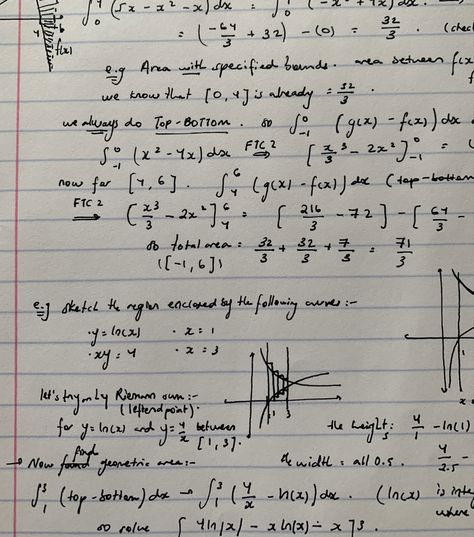 ∫₀⁴ (5x − x² − x) dx = ∫₀⁴ (−x² + 4x) dx
= (−64/3 + 32) − (0) = 32/3 . (chec
6 f(x)
e.g Area with specified bounds. area between f(x
we know that [0, 4] is already = 32/3 .
we always do TOP-BOTTOM. so ∫₋₁⁰ (g(x) − f(x)) dx
∫₋₁⁰ (x² − 4x) dx FTC 2 ⇒ [x³/3 − 2x²]₋₁⁰ =
now for [4, 6] . ∫₄⁶ (g(x) − f(x)) dx (top-bottom
FTC 2 ⇒ (x³/3 − 2x²]₄⁶ = [216/3 − 72] − [64/3 −
so total area = 32/3 + 32/3 + 7/3 = 71/3
([−1, 6])
e.g sketch the region enclosed by the following curves :-
· y = ln(x) · x = 1
· xy = 4 · x = 3
let's try by Riemann sum :-
(left end point).
1 3
for y = ln(x) and y = 4/x between [1, 3].
the heights: 4/1 − ln(1)
→ Now find geometric area :-
the width = all 0.5 . 4/2.5 −
∫₁³ (top-bottom) dx → ∫₁³ (4/x − ln(x)) dx . (ln(x) is inte
where
so solve [4ln|x| − x ln(x) − x]³